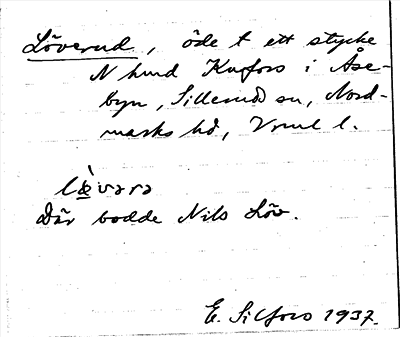 Löverud, öde t ett stycke
N hmd Knfors i Åse-
byn, Sillerud sn, Nord-
marks hd, Vrml l.
læ̀vərə
Där bodde Nils Löv.
E. Silfors 1937.